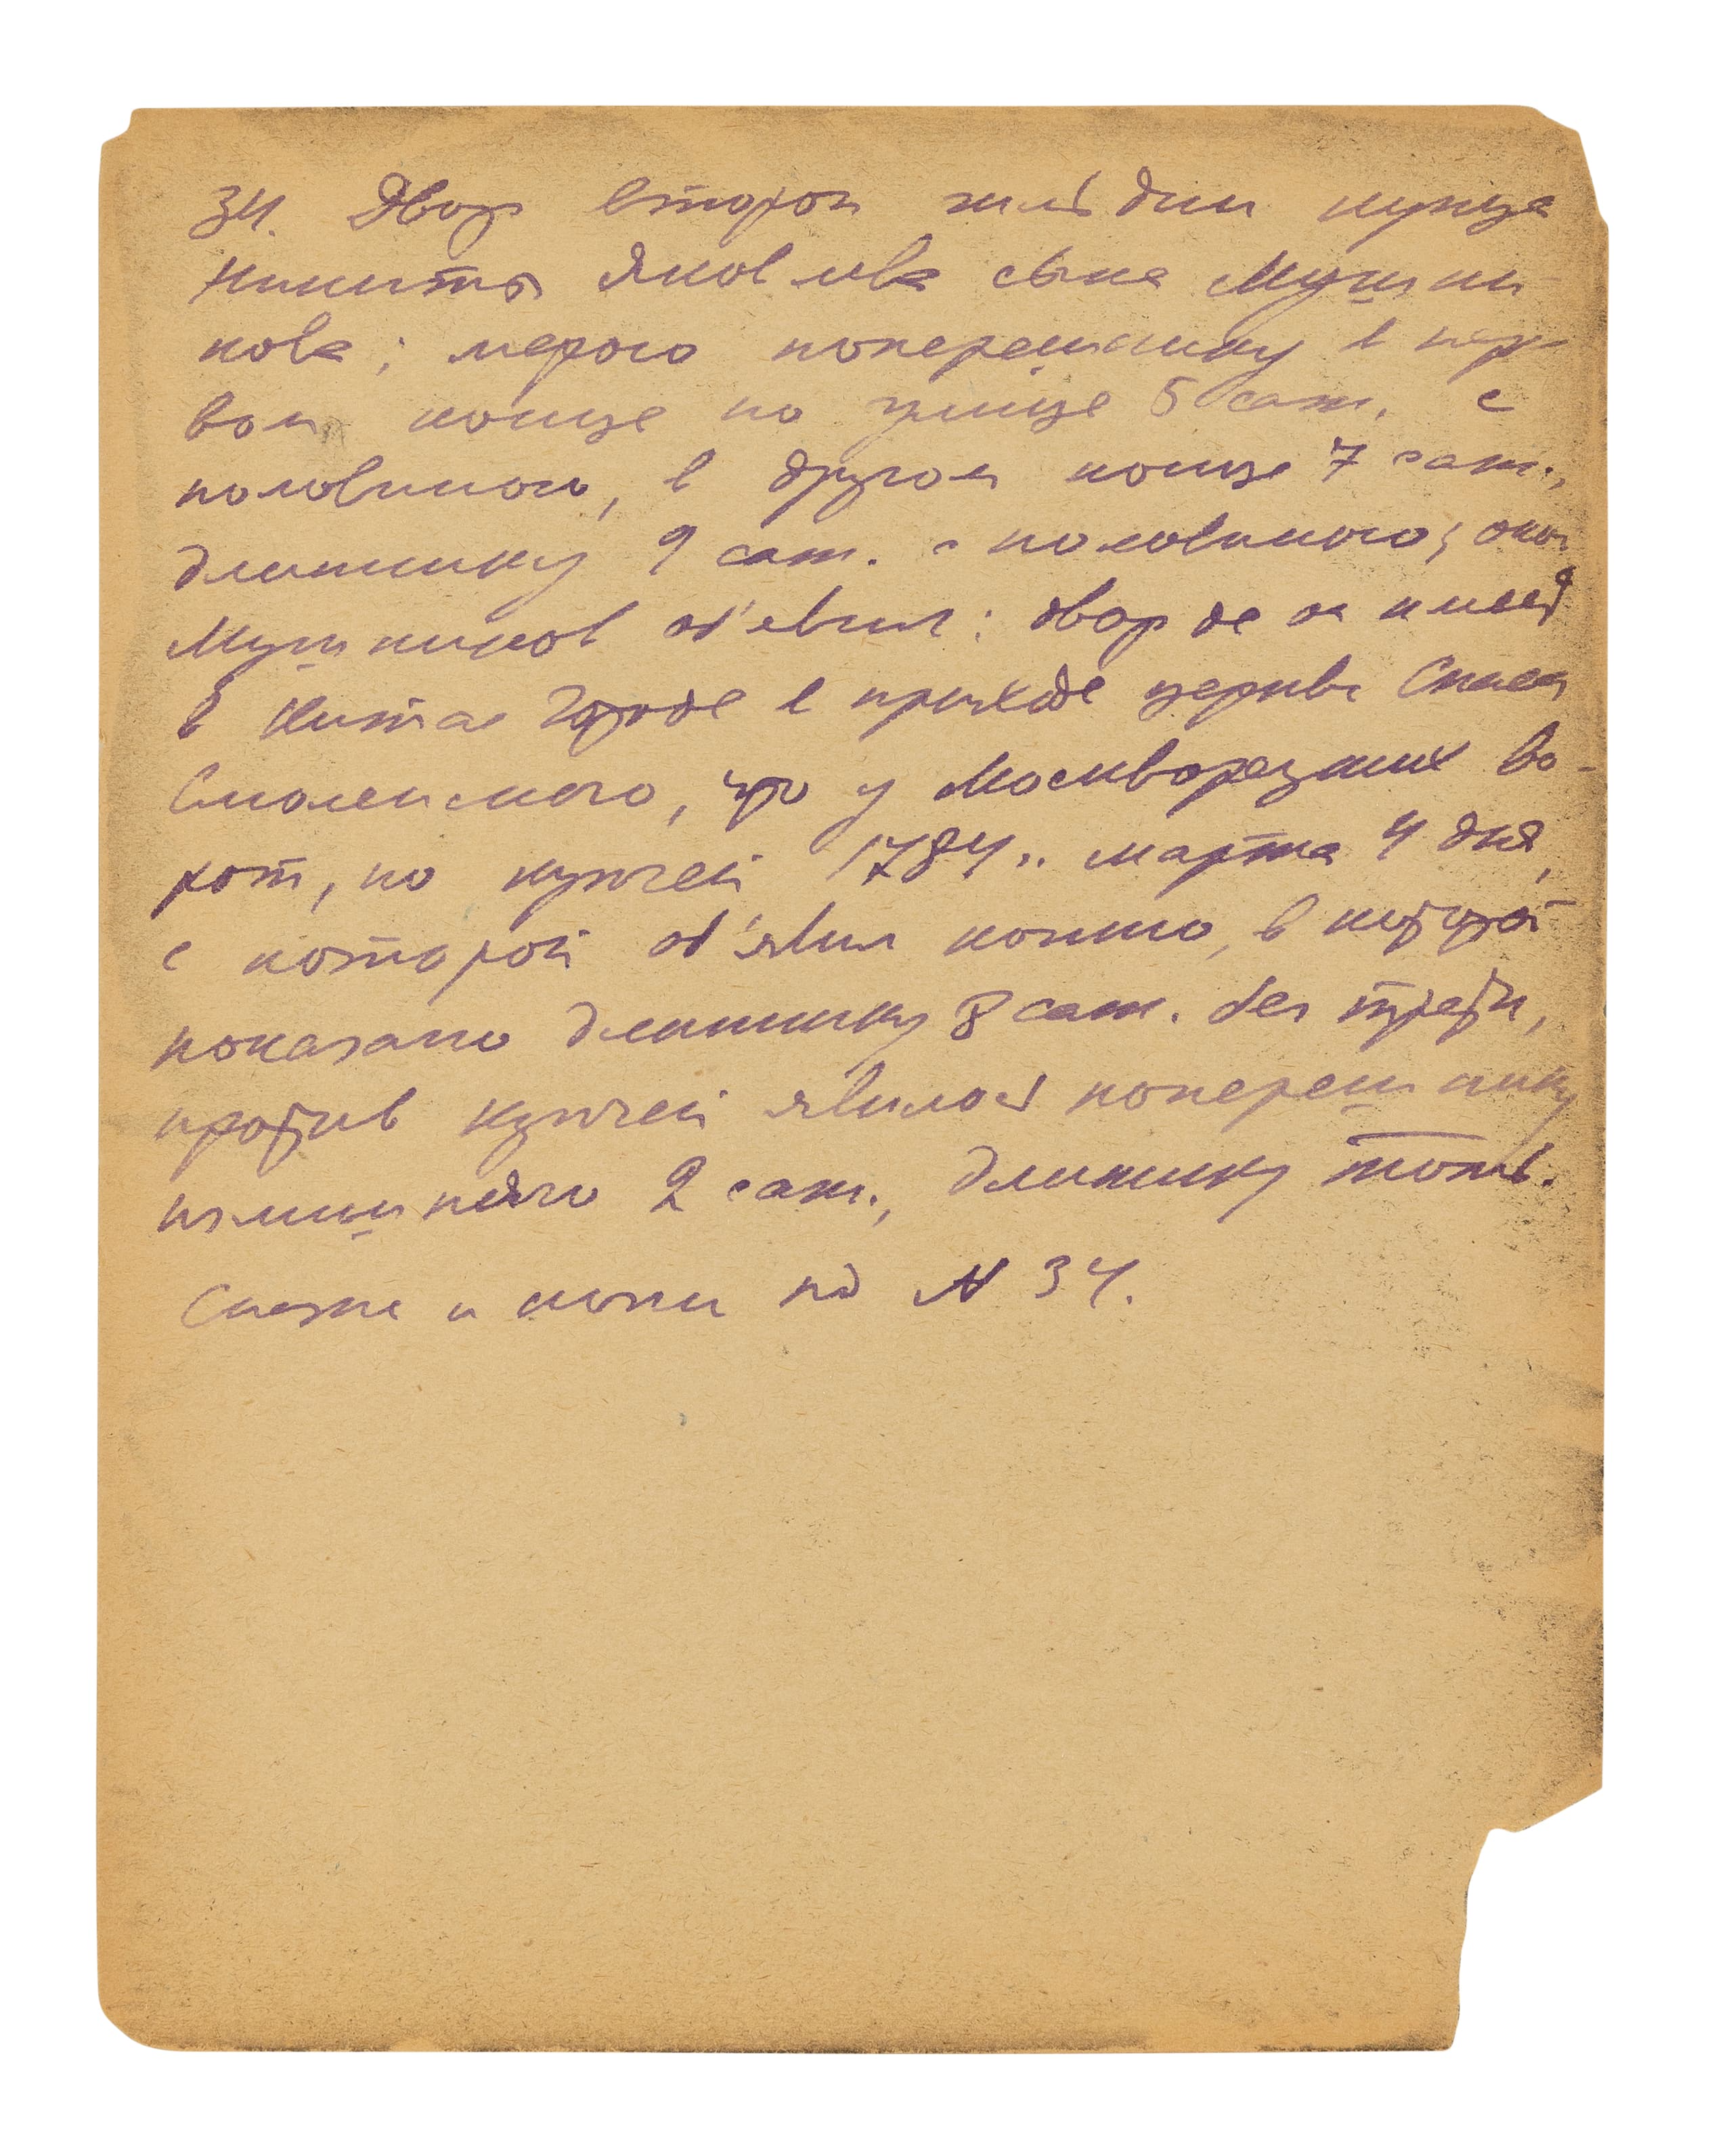 34. Двор второй гильдии купца
Никиты Яковлева сына Мушни-
кова; мерою поперешнику в пер-
вом конце по улице 5 саж. с
половиною, в другом конце 7 саж.,
длиннику 9 саж. с половиною; оной
Мушников об'евил: двор де он имеет
в Китае городе в приходе церкви Спаса
Смоленского, что у Москворецких во-
рот, по купчей 1784 г. марта 4 дня,
с которой об'явил копию, в которой
показано длиннику 8 саж. без трети,
против купчей явилось поперешнику
излишнего 2 саж., длиннику тож.
Скаска и копия под № 34.